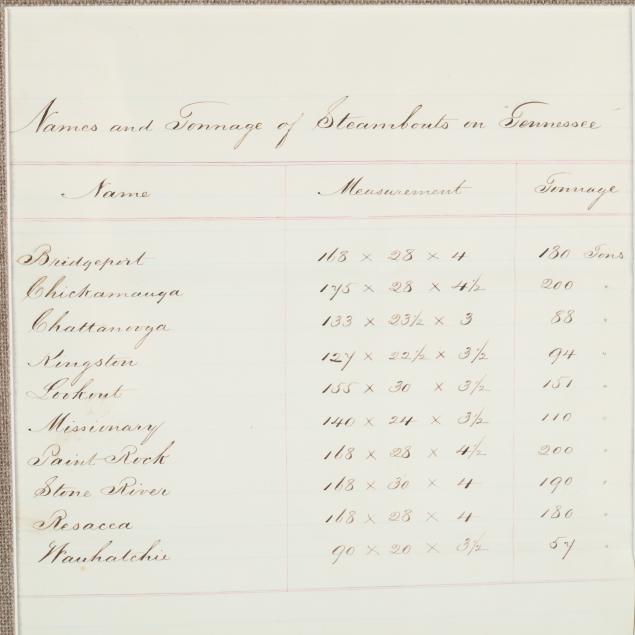 Names and Tonnage of Steamboats on "Tennessee"
Name Measurement Tonnage
Bridgeport 168 × 28 × 4 180 Tons
Chickamauga 175 × 28 × 4½ 200 "
Chattanooga 133 × 23½ × 3 88 "
Kingston 127 × 22½ × 3½ 94 "
Lookout 155 × 30 × 3½ 151 "
Missionary 140 × 24 × 3½ 110 "
Paint Rock 168 × 28 × 4½ 200 "
Stone River 168 × 30 × 4 190 "
Resacca 168 × 28 × 4 180 "
Wauhatchie 90 × 20 × 3½ 57 "